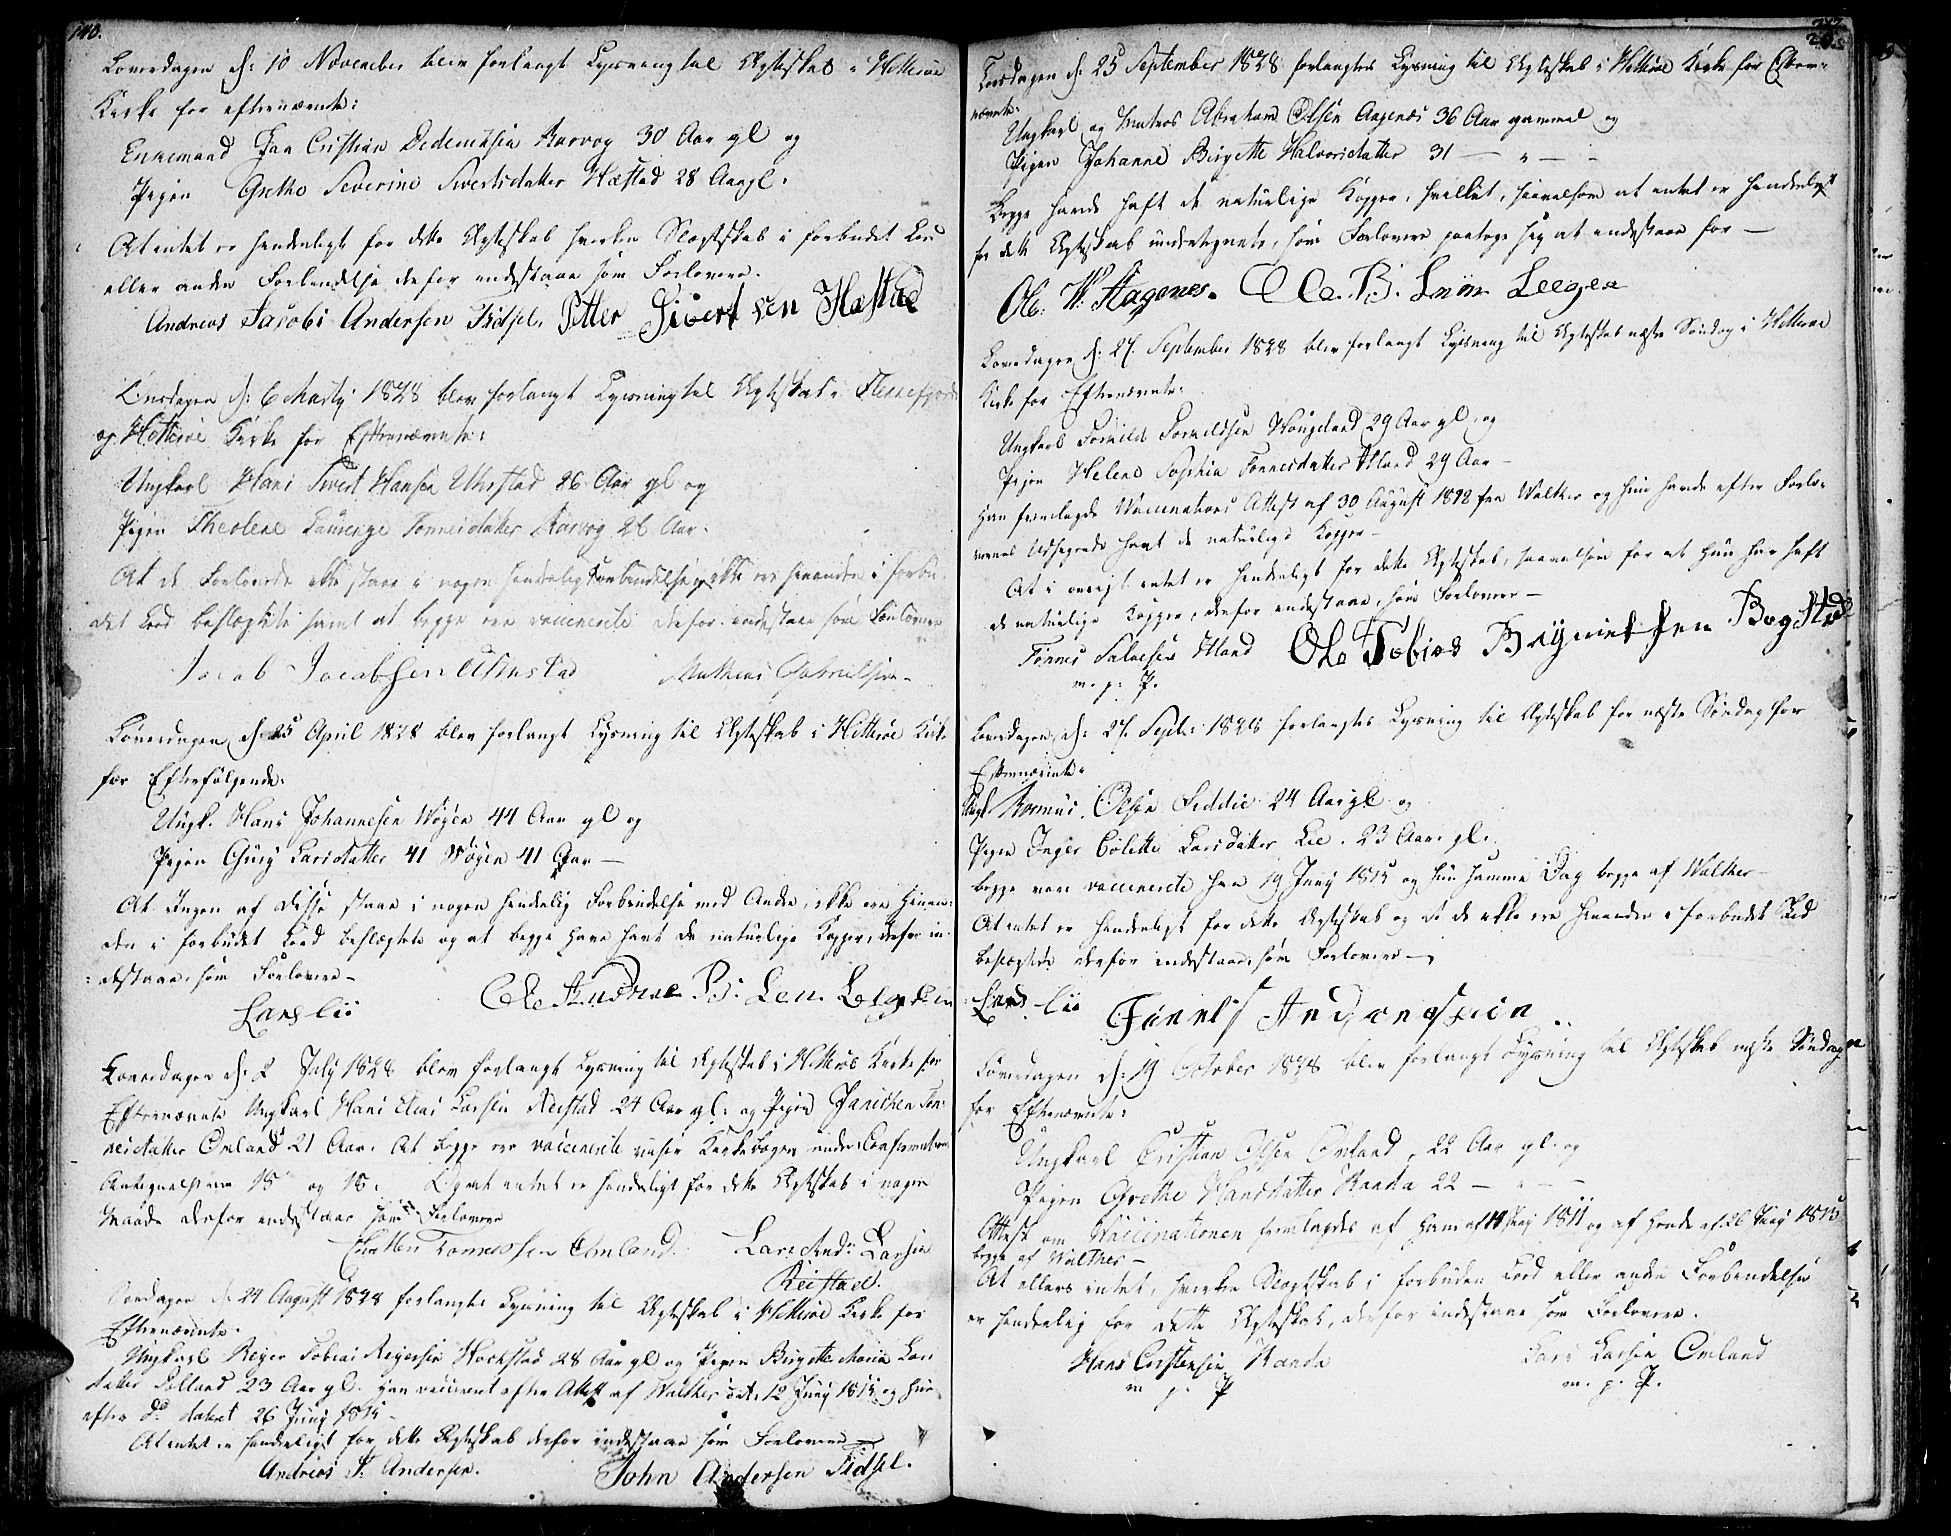 140.
Løverdagen d: 10 November blev forlangt Lysning til Ægteskab i Hitterøe
Kirke for efternævnte:
Enkemand Jan Cristian Dederichsen Rarvog 30 Aar gl og
Pigen Grethe Severine Sivertsdatter Hæstad 28 Aar gl.
At intet er hinderligt for dette Ægteskab hverken Slægtskab i forbudet Led
eller anden Forbindelse derfor indestaae som Forlovere.
Andreas Jacobi Andersen Fidsel. Petter Sivertsen Hæstad
Onsdagen d: 6 Martij 1828 blev forlangt Lysning til Ægteskab i Flekkefjord
og Hitterøe Kirke for Efternævnte:
Ungkarl Hans Sivert Hansen Uhrstad 26 Aar gl og
Pigen Theolene Laurenze Tønnesdatter Rarvog 26 Aar.
At de Forlovede ikke staae i nogen hinderlig Forbindelse og ikke ere hinanden i forbu-
det Led beslægtede samt at begge ere vaccinerte derfor indestaae som Forlovere
Jacob Jacobsen Uhrstad Mathias Gabrielsen
Løverdagen d: 25 April 1828 blev forlangt Lysning til Ægteskab i Hitterøe Kirke
for Efterfølgende:
Ungk. Hans Johannesen Wøgen 44 Aar gl og
Pigen Guri Larsdatter 41 Wøgen 41 Aar —
At Ingen af disse staae i nogen hinderlig Forbindelse med Andre, ikke ere hinan-
den i forbudet Led beslægtede og at begge have havt de naturlige Kopper, derfor in-
destaae som Forlovere —
Lars Lii Ole Andreas B:
Løverdagen d: 2 July 1828 blev forlangt Lysning til Ægteskab i Hitterøe Kirke for
Efternævnte Ungkarl Hans Elias Larsen Reistad 24 Aar gl: og Pigen Janichen Tøn-
nesdatter Omland 21 Aar. At begge ere vaccinerte viser Kirkebogen under Confirmations
Antegnelserne 18 og 18. Og at intet er hinderligt for dette Ægteskab i nogen
Maade derfor indestaaer som Forlovere
Tønnessen Omland. Lars And: Larsen
Reistad.
Søndagen d: 24 August 1828 forlangtes Lysning til Ægteskab i Hitterøe Kirke for
Efternævnte.
Ungkarl Reyer Tobias Reyersen Hochstad 28 Aar gl og Pigen Birgitte Maria Lars
datter Dilland 23 Aar gl. Han vaccineret efter Attest af Walther dat. 12 Juny 1814 og hun
efter do dateret 26 Juny 1814
At intet er hinderligt for dette Ægteskab derfor indestaae som Forlovere
Andreas J: Andersen. John Andersen Fidsel.
Torsdagen d: 25 September 1828 forlangtes Lysning til Ægteskab i Hitterøe Kirke for Efter-
nævnte:
Ungkarl og Matros Abraham Olsen Aagenes 36 Aar gammel og
Pigen Johanne Birgitte Halvorsdatter 31 — " —
Begge havde haft de naturlige Kopper, hvilket, saavelsom at intet er hinderligt
for dette Ægteskab undertegnede, som Forlovere paatoge sig at indestaae for —
Ol: W: Aagenes. Ole. B.
Løverdagen d: 27 September 1828 blev forlangt Lysning til Ægteskab næste Søndag i Hitterøe
Kirke for Efternævnte:
Ungkarl Torkild Torkildsen Hougeland 29 Aar gl. og
Pigen Helene Sophia Tønnesdatter Iland 29 Aar —
Han fremlagde Vaccinations Attest af 30 August 1812 fra Walther og hun havde efter Forlo-
vernes Udsagende havt de naturlige Kopper —
At i øvrigt intet er hinderligt for dette Ægteskab, saavelsom for at hun har haft
de naturlige Kopper, derfor indestaae, som Forlovere —
Tønnes Salvesen Iland Ole Tobias Bogstad
m. p. P.
Løverdagen d: 27 Septbr: 1828 forlangtes Lysning til Ægteskab for næste Søndag for
Efternævnte:
Ungk. Rasmus Olsen Feddie 24 Aar gl. og
Pigen Inger Colette Larsdatter Lie. 23 Aar gl.
begge vare vaccinerte han 19 Juny 1815 og hun samme Dag begge af Walther —
At intet er hinderligt for dette Ægteskab og at de ikke ere hinanden i forbudet Led
beslægtede derfor indestaae, som Forlovere —
Lars Lii
Løverdagen d: 19 October 1828 blev forlangt Lysning til Ægteskab næste Søndag
for Efternævnte:
Ungkarl Cristian Olsen Omland, 22 Aar gl. og
Pigen Grethe Hansdatter Rauda 22 — " —
Attest om Vaccinationen fremlagdes af ham af 14 Juny 1811 og af hende af 26 Juny 1815
begge af Walther —
At ellers intet, hverken Slægtskab i forbuden Led eller anden Forbindelse
er hinderlig for dette Ægteskab, derfor indestaae som Forlovere.
Hans Cristensen Rauda Lars Larsen Omland
m. p. P m. p. P.